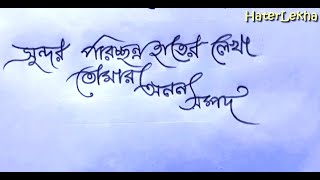 HaterLekha
সুন্দর পরিচ্ছন্ন হাতের লেখা
তোমার অনন্য
সম্পদ